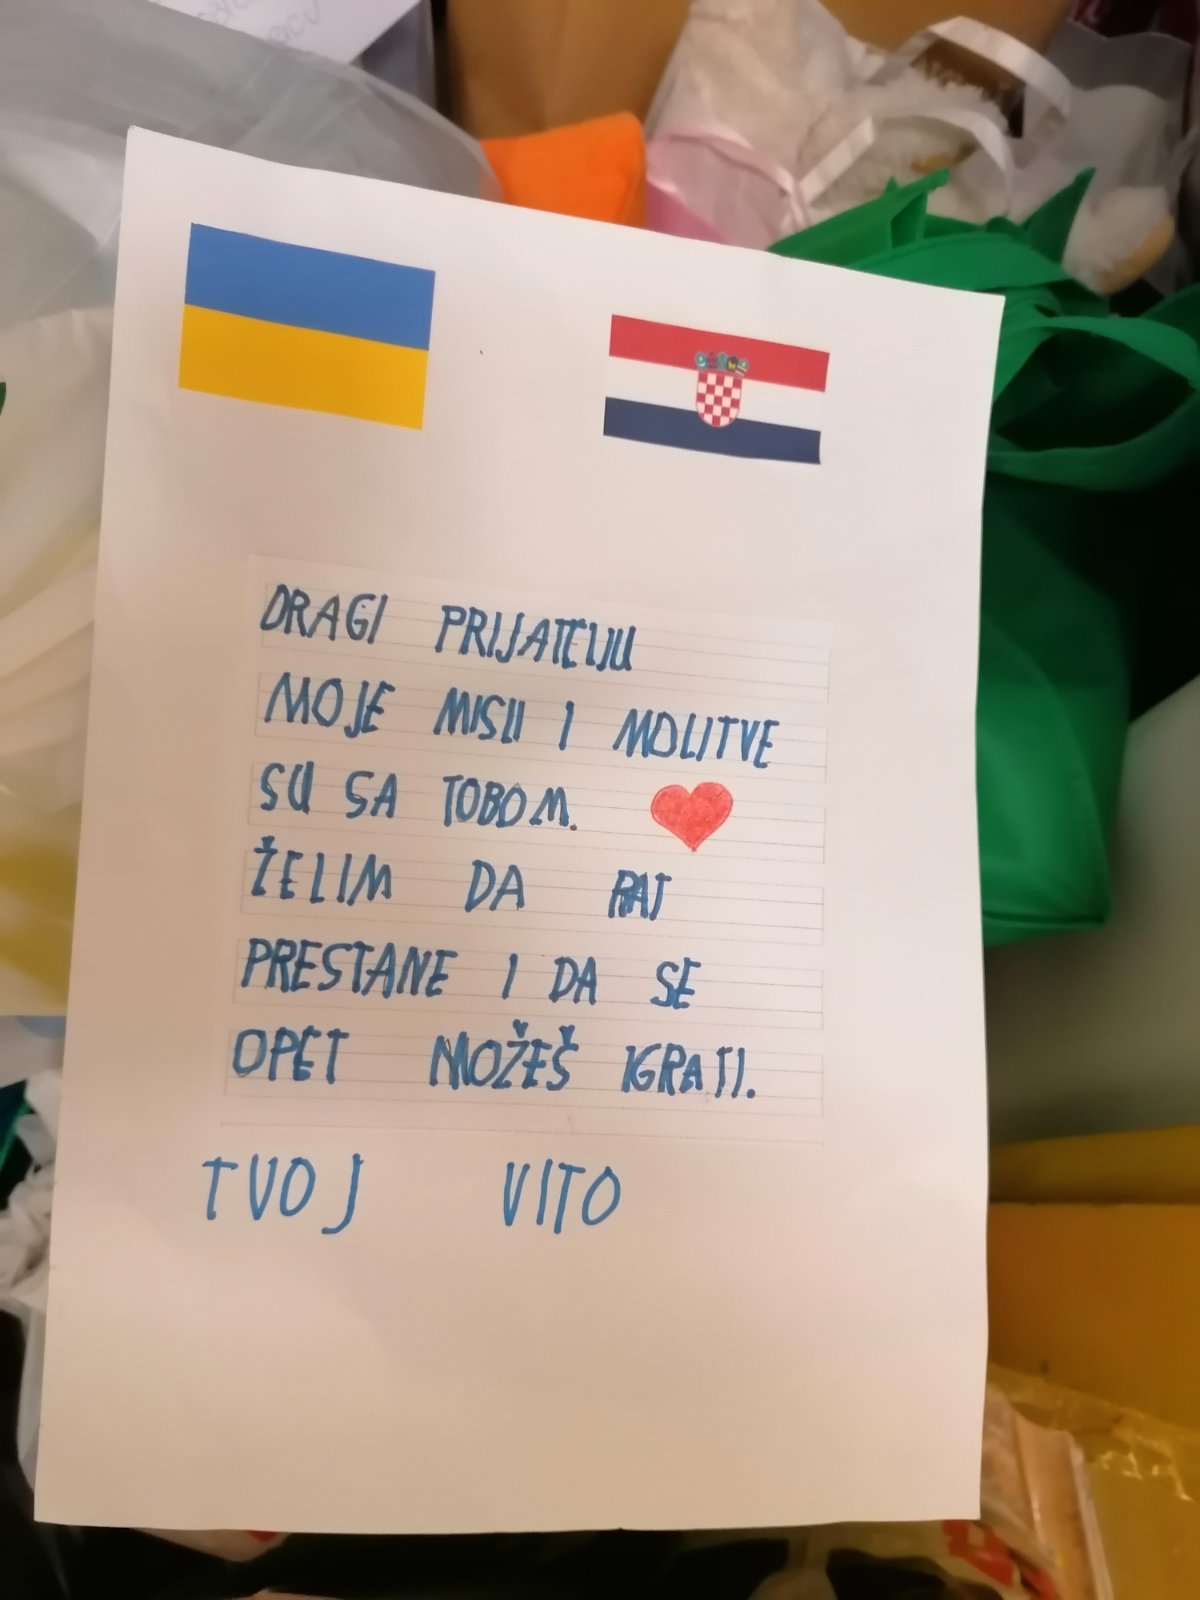 DRAGI PRIJATELJU
MOJE MISLI I MOLITVE
SU SA TOBOM.
ŽELIM DA RAT
PRESTANE I DA SE
OPET MOŽEŠ IGRATI.
TVOJ VITO